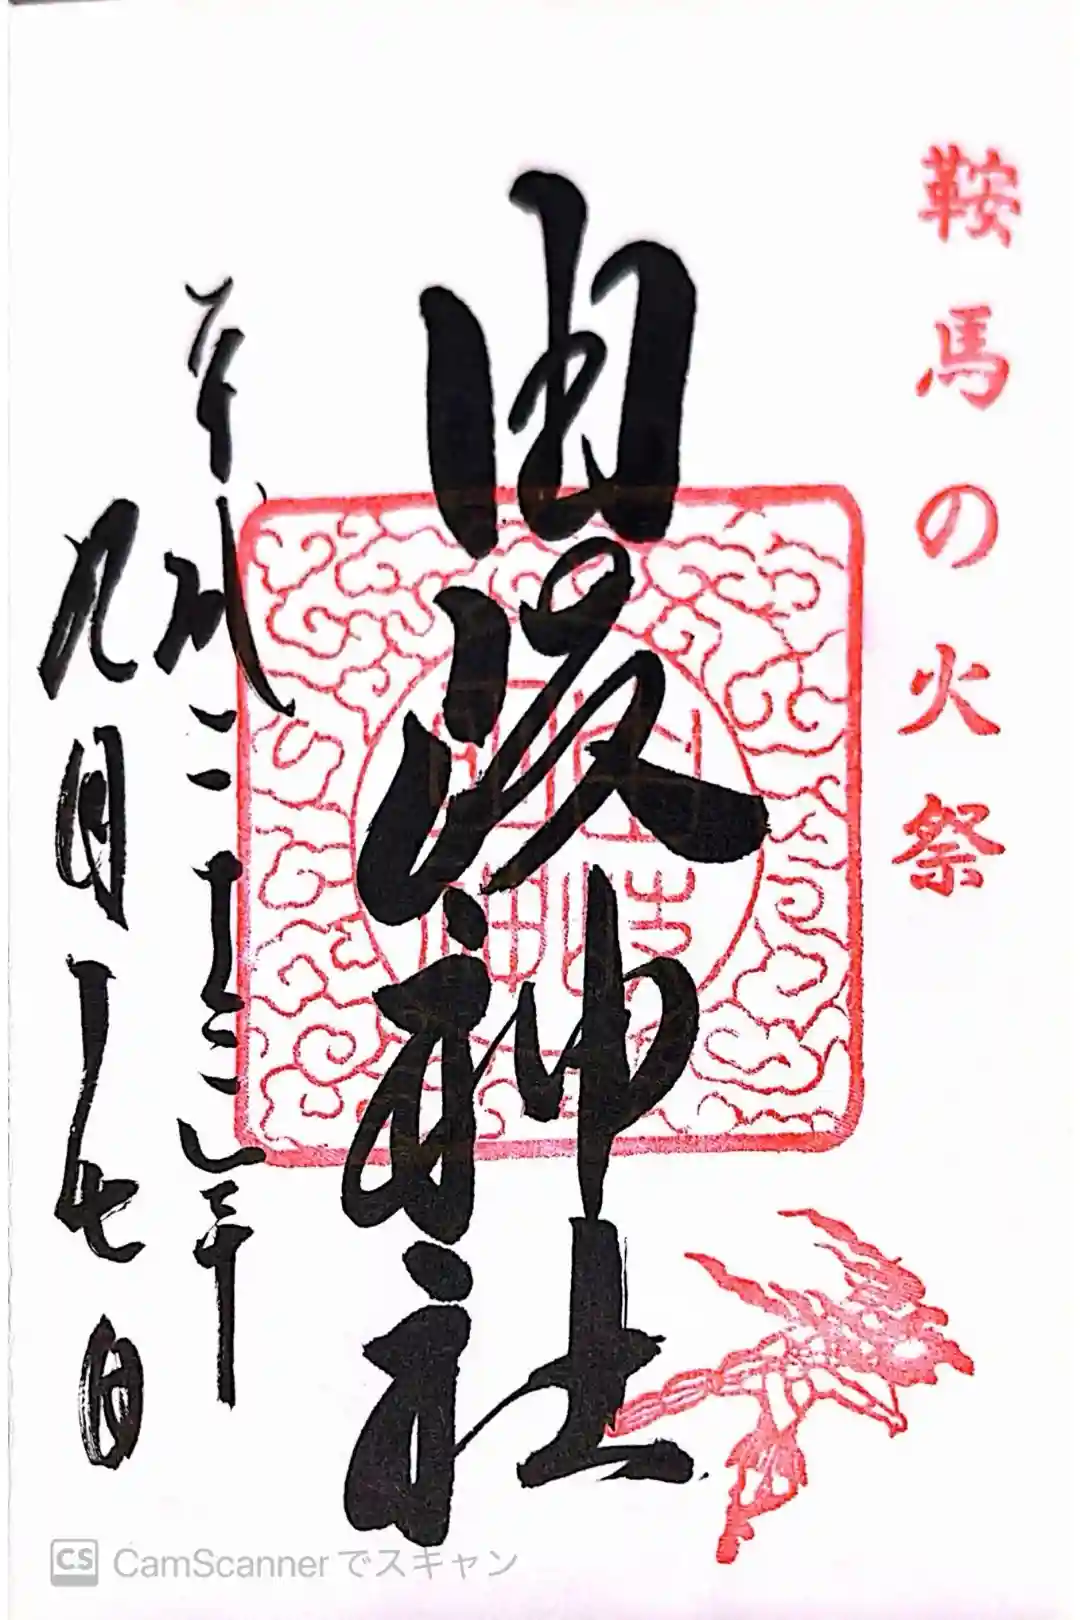 鞍馬の火祭
由岐神社
平成二十三年
九月十七日
CS CamScannerでスキャン